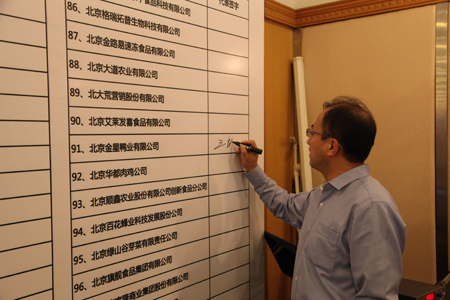 代表签字
86、北京格瑞拓普生物科技有限公司
87、北京金路易速冻食品有限公司
88、北京大道农业有限公司
89、北大荒营销股份有限公司
90、北京艾莱发喜食品有限公司
91、北京金星鸭业有限公司
92、北京华都肉鸡公司
93、北京顺鑫农业股份有限公司创新食品分公司
94、北京百花蜂业科技发展股份公司
95、北京绿山谷芽菜有限责任公司
96、北京旗舰食品集团有限公司